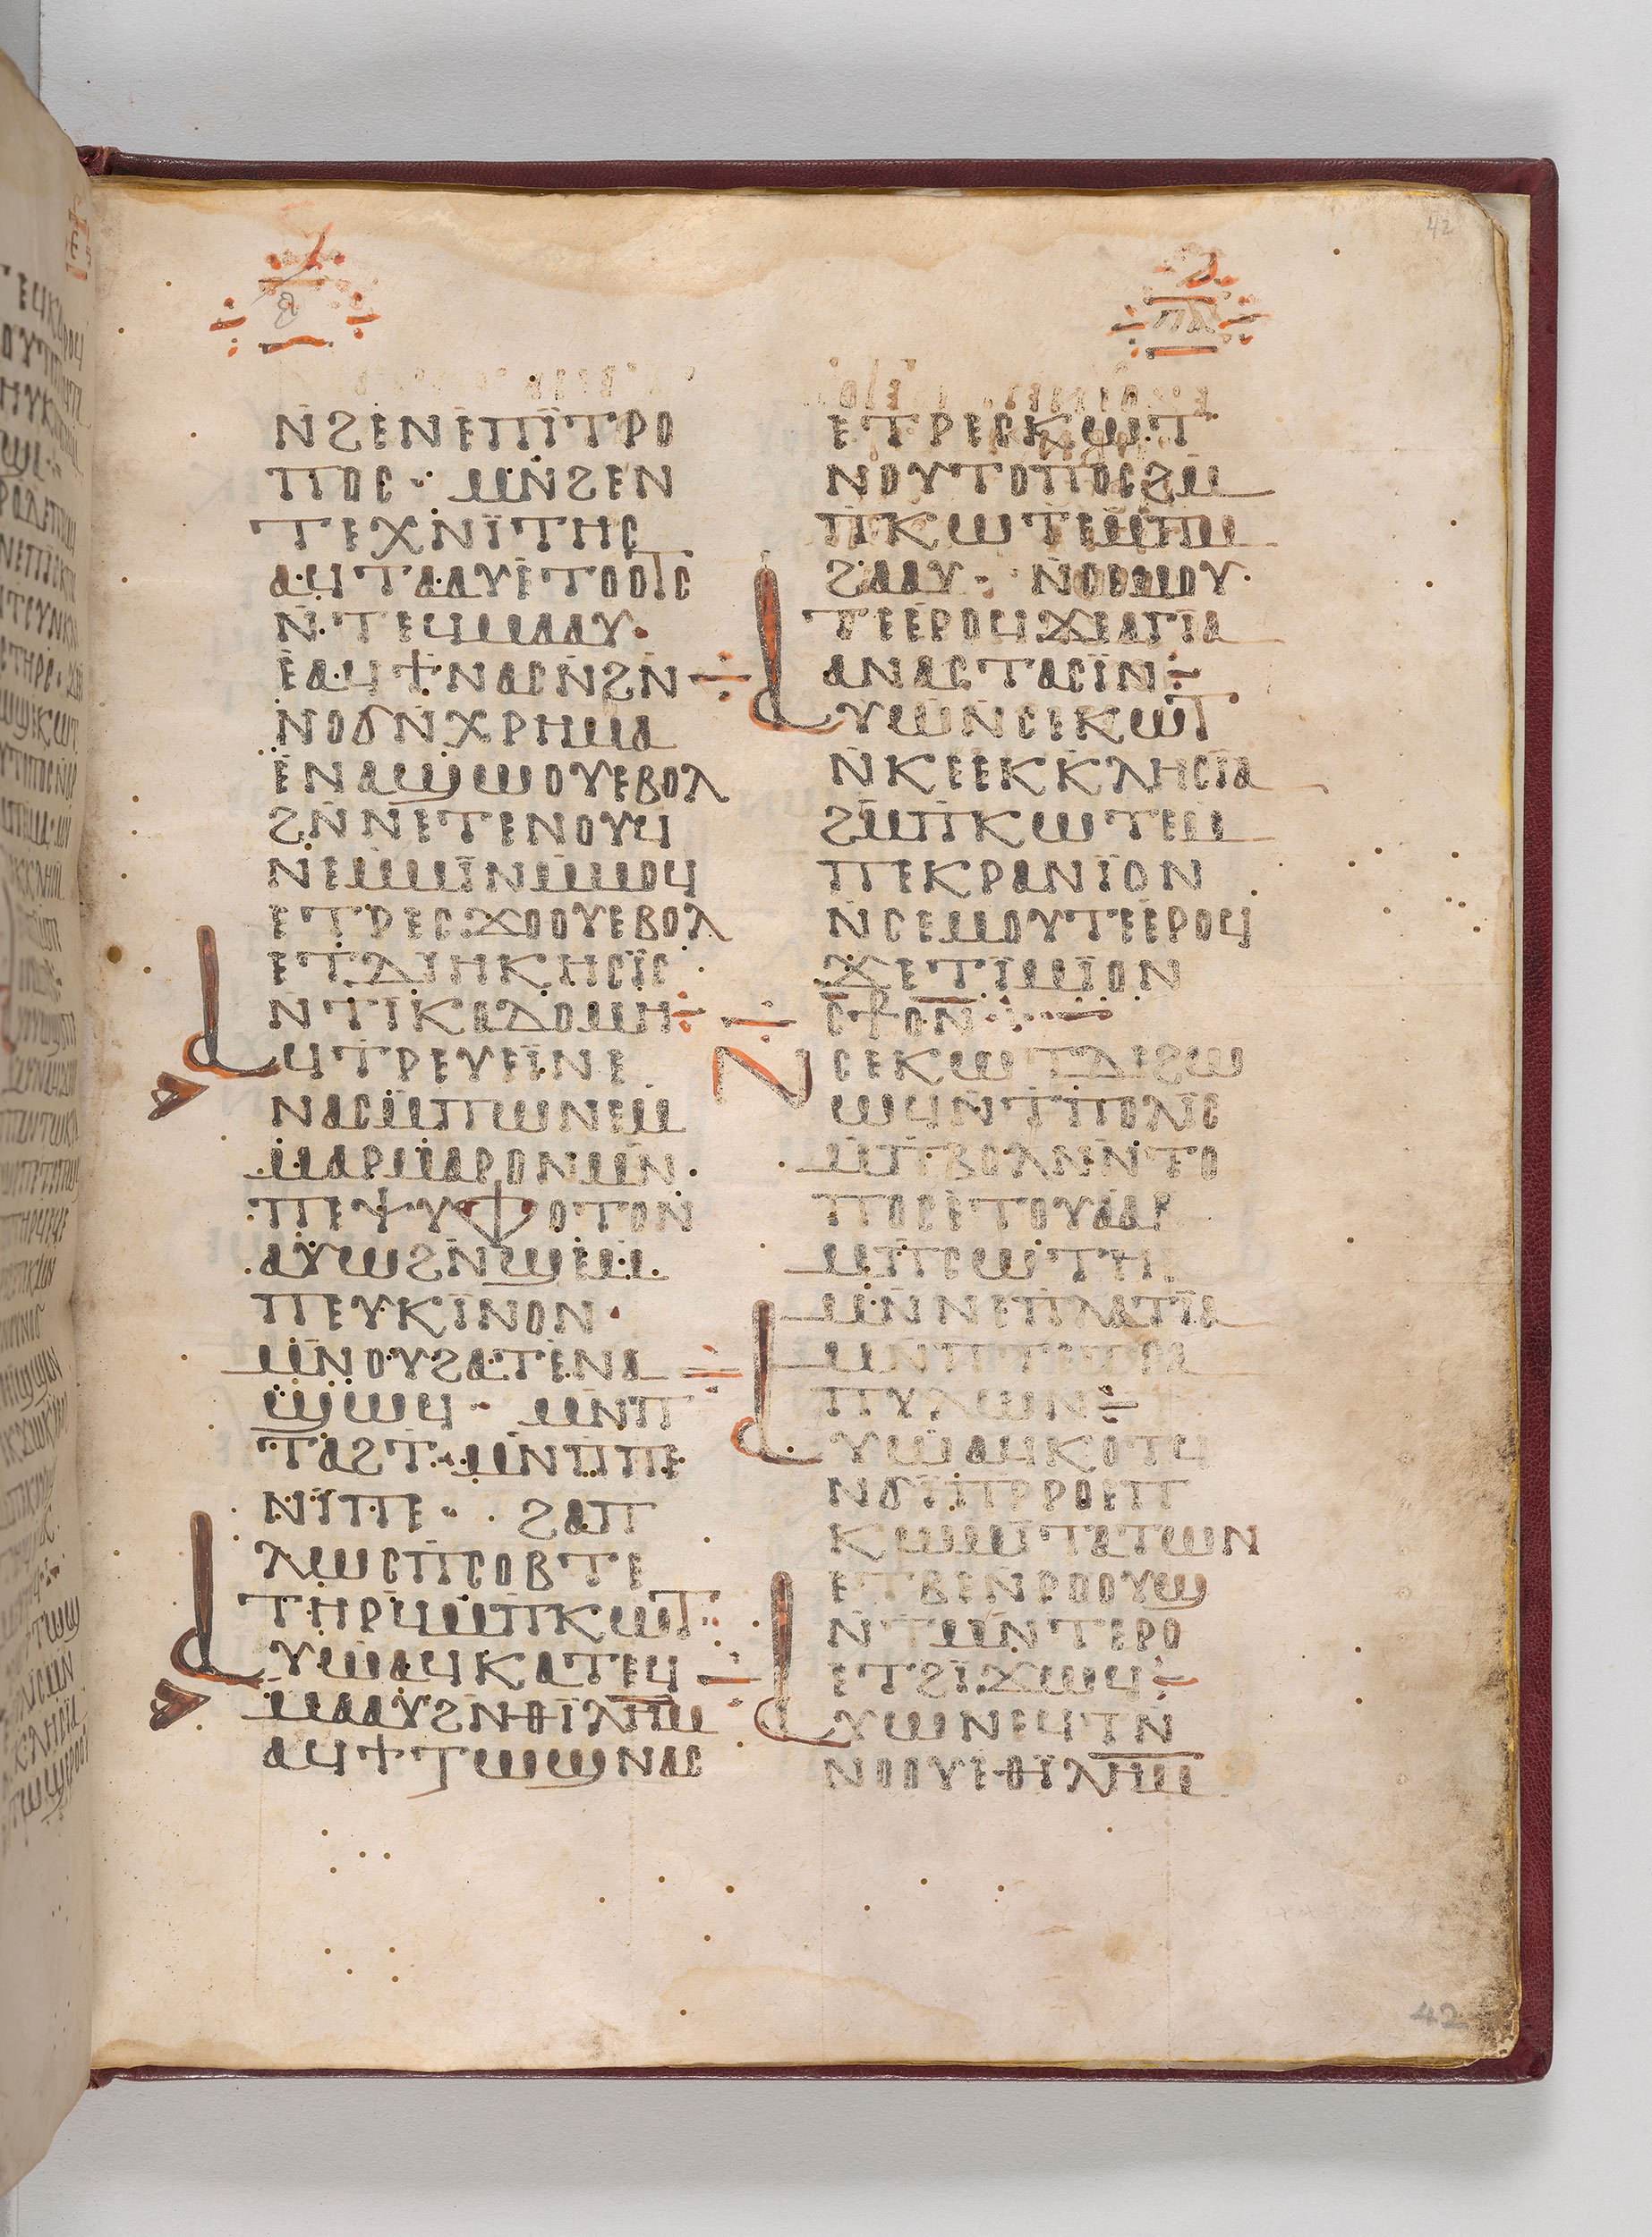 ⲛ̇ϩⲉⲛⲉⲡⲓ̈ⲧⲣⲟ
ⲡⲟⲥ · ⲙⲛ̇ϩⲉⲛ
ⲧⲉⲭⲛⲓ̈ⲧⲏⲥ
ⲁϥⲧⲁⲁⲩⲉ̇ⲧⲟⲟⲧⲥ
ⲛ̇ⲧⲉϥⲙⲁⲁⲩ·
ⲉ̇ⲁϥϯⲛⲁⲥⲛ̇ϩⲛ̇
ⲛⲟϭⲛ̇ⲭⲣⲏⲙⲁ
ⲉ̇ⲛⲁϣⲱⲟⲩⲉⲃⲟⲗ
ϩⲛ̇ⲛⲉⲧⲉⲛⲟⲩϥ
ⲛⲉⲙ̇ⲙⲓ̈ⲛⲙ̇ⲙⲟϥ
ⲉⲧⲣⲉⲥϫⲟⲟⲩⲉⲃⲟⲗ
ⲉⲧⲇⲓⲏⲕⲏⲥⲓ̈ⲥ
ⲛ̇ⲧⲓ̈ⲕⲟⲇⲟⲙⲏ ÷
ⲁϥⲧⲣⲉⲩⲉⲓ̈ⲛⲉ
ⲛⲁⲥⲙ̇ⲡⲱⲛⲉⲙ
ⲙⲁⲣⲙⲁⲣⲟⲛⲙⲛ̇
ⲡⲉⲯⲩⲫⲟⲧⲟⲛ
ⲁⲩⲱϩⲛ̇ϣⲉⲙ
ⲡⲉⲩⲕⲓ̈ⲛⲟⲛ·
ⲙⲛ̇ⲟⲩϩⲁⲧⲉ̇ⲛⲁ
ϣⲱϥ · ⲙⲛ̇ⲡ
ⲧⲁϩⲧ · ⲙⲛ̇ⲡⲡⲉ
ⲛⲓ̈ⲡⲉ · ϩⲁⲡ
ⲗⲱⲥⲡ̇ⲥⲟⲃⲧⲉ
ⲧⲏⲣϥⲙ̇ⲡⲕⲱⲧ
ⲁⲩⲱⲁϥⲕⲁⲧⲉϥ
ⲙⲁⲁⲩϩⲛ̇ⲑⲓ̈ⲗⲏ̅ⲙ̅
ⲁϥϯⲧⲱϣⲛⲁⲥ
ⲉⲧⲣⲉⲥⲕⲱⲧ
ⲛⲟⲩⲧⲟⲡⲟⲥϩⲙ
ⲡⲕⲱⲧⲉⲙ̇ⲡⲙ
ϩⲁⲁⲩ · ⲛ̇ⲥⲉⲙⲟⲩ
ⲧⲉⲉ̇ⲣⲟϥϫⲉⲁⲅⲓ̈ⲁ
ⲁⲛⲁⲥⲧⲁⲥⲓ̈ⲛ ÷
ⲁⲩⲱⲛ̇ⲥⲉⲕⲱⲧ
ⲛ̇ⲕⲉⲉⲕⲕⲗⲏⲥⲓ̈ⲁ
ϩⲙ̇ⲡⲕⲱⲧⲉⲙ
ⲡⲉⲕⲣⲁⲛⲓ̈ⲟⲛ
ⲛ̇ⲥⲉⲙⲟⲩⲧⲉⲉ̇ⲣⲟϥ
ϫⲉⲧⲓ̈ⲙⲓ̈ⲟⲛ
ⲥ̅ⳁⲟ̅ⲛ̅
ⲛⲥⲉⲕⲱⲧⲇⲉϩⲱ
ⲱϥⲛ̇ⲧⲡⲟⲗⲓ̈ⲥ
ⲙ̇ⲡⲃⲟⲗⲛ̇ⲛ̇ⲧⲟ
ⲡⲟⲥⲉⲧⲟⲩⲁⲁⲃ
ⲙ̇ⲡⲥⲱⲧⲏⲣ
ⲙⲛ̇ⲛⲉⲡⲗⲁⲧⲓ̈ⲁ
ⲡⲩⲗⲱⲛ ÷
ⲁⲩⲱⲁϥⲕⲟⲧϥ
ⲛϭⲓ̈ⲡⲣⲣⲟⲉⲡ
ⲕⲱⲙ̇ⲧⲁⲧⲱⲛ
ⲉⲧⲃⲉⲛⲣⲟⲟⲩϣ
ⲛ̇ⲧⲙⲛ̇ⲧⲉⲣⲟ
ⲉⲧϩⲓ̈ϫⲱϥ ÷
ⲁⲩⲱⲛⲉϥⲧⲛ̇
ⲛⲟⲟⲩⲉⲑⲓ̈ⲗⲏ̅ⲙ̅
42
42